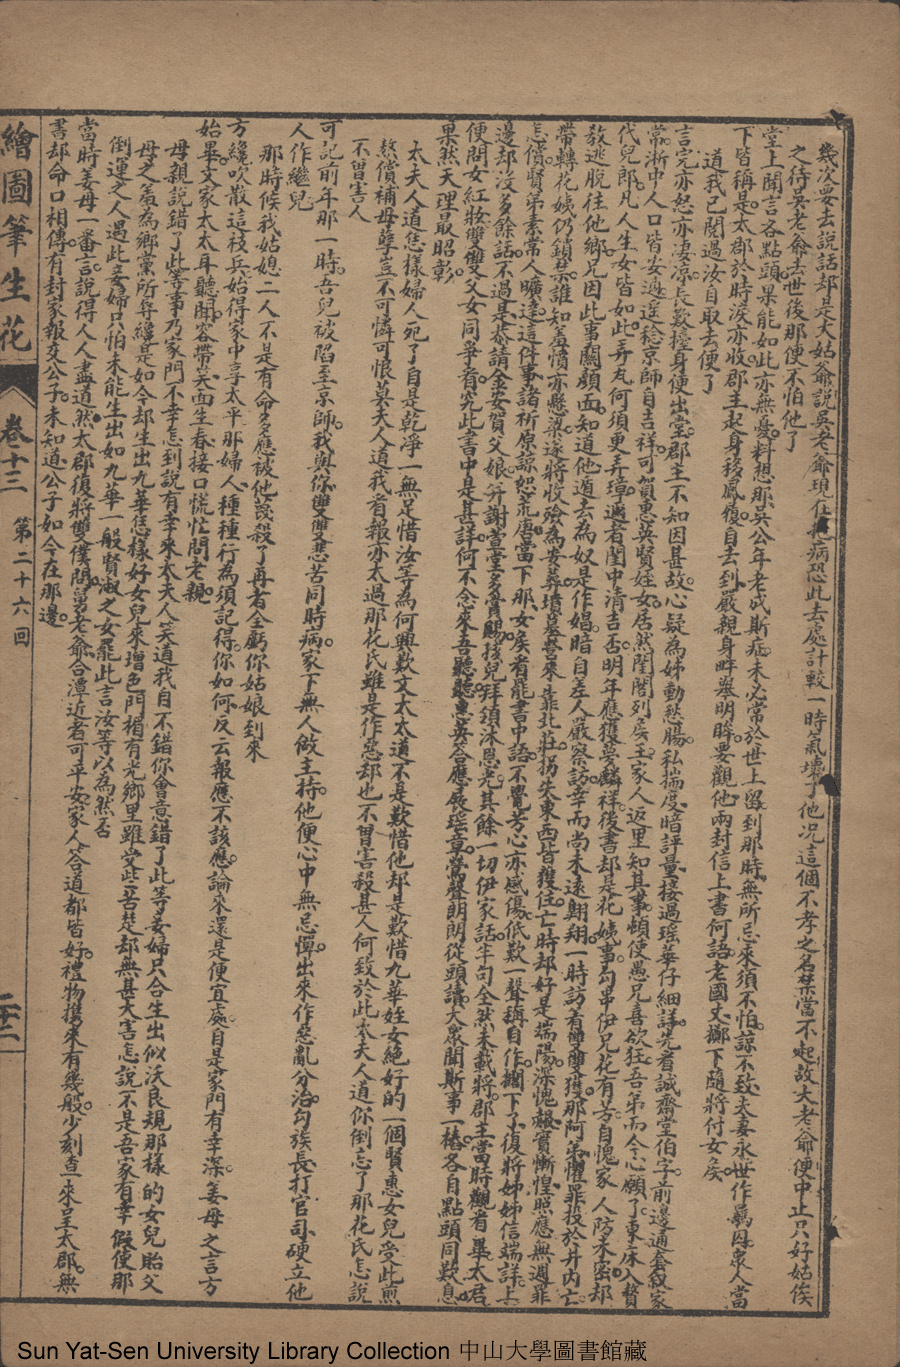 幾次要去說話却是大姑爺說吳老爺現在抱病恐此去處計較一時氣壞了他况這個不孝之名禁當不起故大老爺便中止只好姑俟
之待吳老爺去世後那便不怕他了
堂上聞言各點頭果能如此亦無憂料想那吳公年老成斯症未必常於世上留到那時無所忌來須不怕諒不致夫妻永世作羈囚衆人當
下皆稱是太郡於時淚亦收郡主起身移鳳履自去到嚴親身畔舉明眸要觀他兩封信上書何語老國丈擲下隨將付女矦
道我已閱過汝自取去便了
言完亦恕亦凄凉長歎擡身便出堂郡主不知因甚故心疑為姊動愁腸私揣度暗評量接過瑶華仔細詳先看誠齋堂伯字前邊通套叙家
常浙中人口皆安遍遥稔京師自吉祥可賀惠英賢姪女居然閨閣列矦王家人返里知其事頓使愚兄喜欲狂吾弟而今心願了東床入贅
代兒郎凡人生女皆如此弄瓦何須更弄璋邇者閨中清吉否明年應獲夢麟祥後書却是花姨事勾串伊兄花有芳自愧家人防未密却
教逃脱往他鄉兄因此事關顏面知道他遁去為奴是作娼暗自差人嚴察訪幸而尚未遠翺翔一時訪着雙雙獲那阿弟懼罪投於井内亡
帶轉花姨仍鎖禁誰知羞憤亦懸梁遂將收殮為安葬墳墓營來靠北莊拐失東西皆獲住亡時却好是端陽深愧赧實慚惶照應無週罪
怎償賢弟素常人曠達這件事諸祈原諒恕荒唐當下那女矦看罷書中語不覺芳心亦感傷低歎一聲稱自作擱下了復將姊姊信端詳上
邊却没多餘話不過是恭請金安賀父娘并謝當堂多賞賜孩兒拜領沐恩光其餘一切伊家話半句全然未載將郡主當時觀看畢太君
便問女紅妝雙雙父女同爭看究此書中是甚詳何不念來吾聽聽惠英答應展瑶章鶯聲朗朗從頭讀大衆聞斯事一樁各自點頭同歎息
果然天理最昭彰
太夫人道怎樣婦人死了自是乾淨一無足惜汝等為何興歎文太太道不是歎惜他却是歎惜九華姪女絕好的一個賢惠女兒受此煎
熬償補母孽豈不可憐可恨莫夫人道我看報亦太過那花氏雖是作惡却也不曾害殺甚人何致於此太夫人道你倒忘了那花氏怎說
不曾害人
可記前年那一時吾兒被陷至京師我與你雙雙悲苦同時病家下無人做主持他便心中無忌憚出來作惡亂分治勾族長打官司硬立他
人作繼兒
那時候我姑媳二人不是有命多應被他蔑殺了再者全虧你姑娘到來
方纔吹散這枝兵始得家中享太平那婦人種種行為須記得你如何反云報應不該應論來還是便宜處自是家門有幸深姜母之言方
始畢文家太太耳聽聞容帶笑面生春接口慌忙問老親
母親說錯了此等事乃家門不幸怎到說有幸來太夫人笑道我自不錯你會意錯了此等妾婦只合生出似沃良規那樣的女兒貽父
母之羞為鄉黨所辱纔是如今却生出九華恁樣好女兒來增色門楣有光鄉里雖受此苦楚却無甚大害怎說不是吾家有幸假使那
倒運之人遇此妾婦只怕未能生出如九華一般賢淑之女罷此言汝等以為然否
當時姜母一番言說得人人盡道然太郡復將雙僕問留老爺合潭近者可平安家人答道都皆好禮物携來有幾般少刻查來呈太郡無
書却命口相傳有封家報交公子未知道公子如今在那邊
繪圖筆生花 卷十三 第二十六回 二十二
Sun Yat-Sen University Library Collection 中山大學圖書館藏